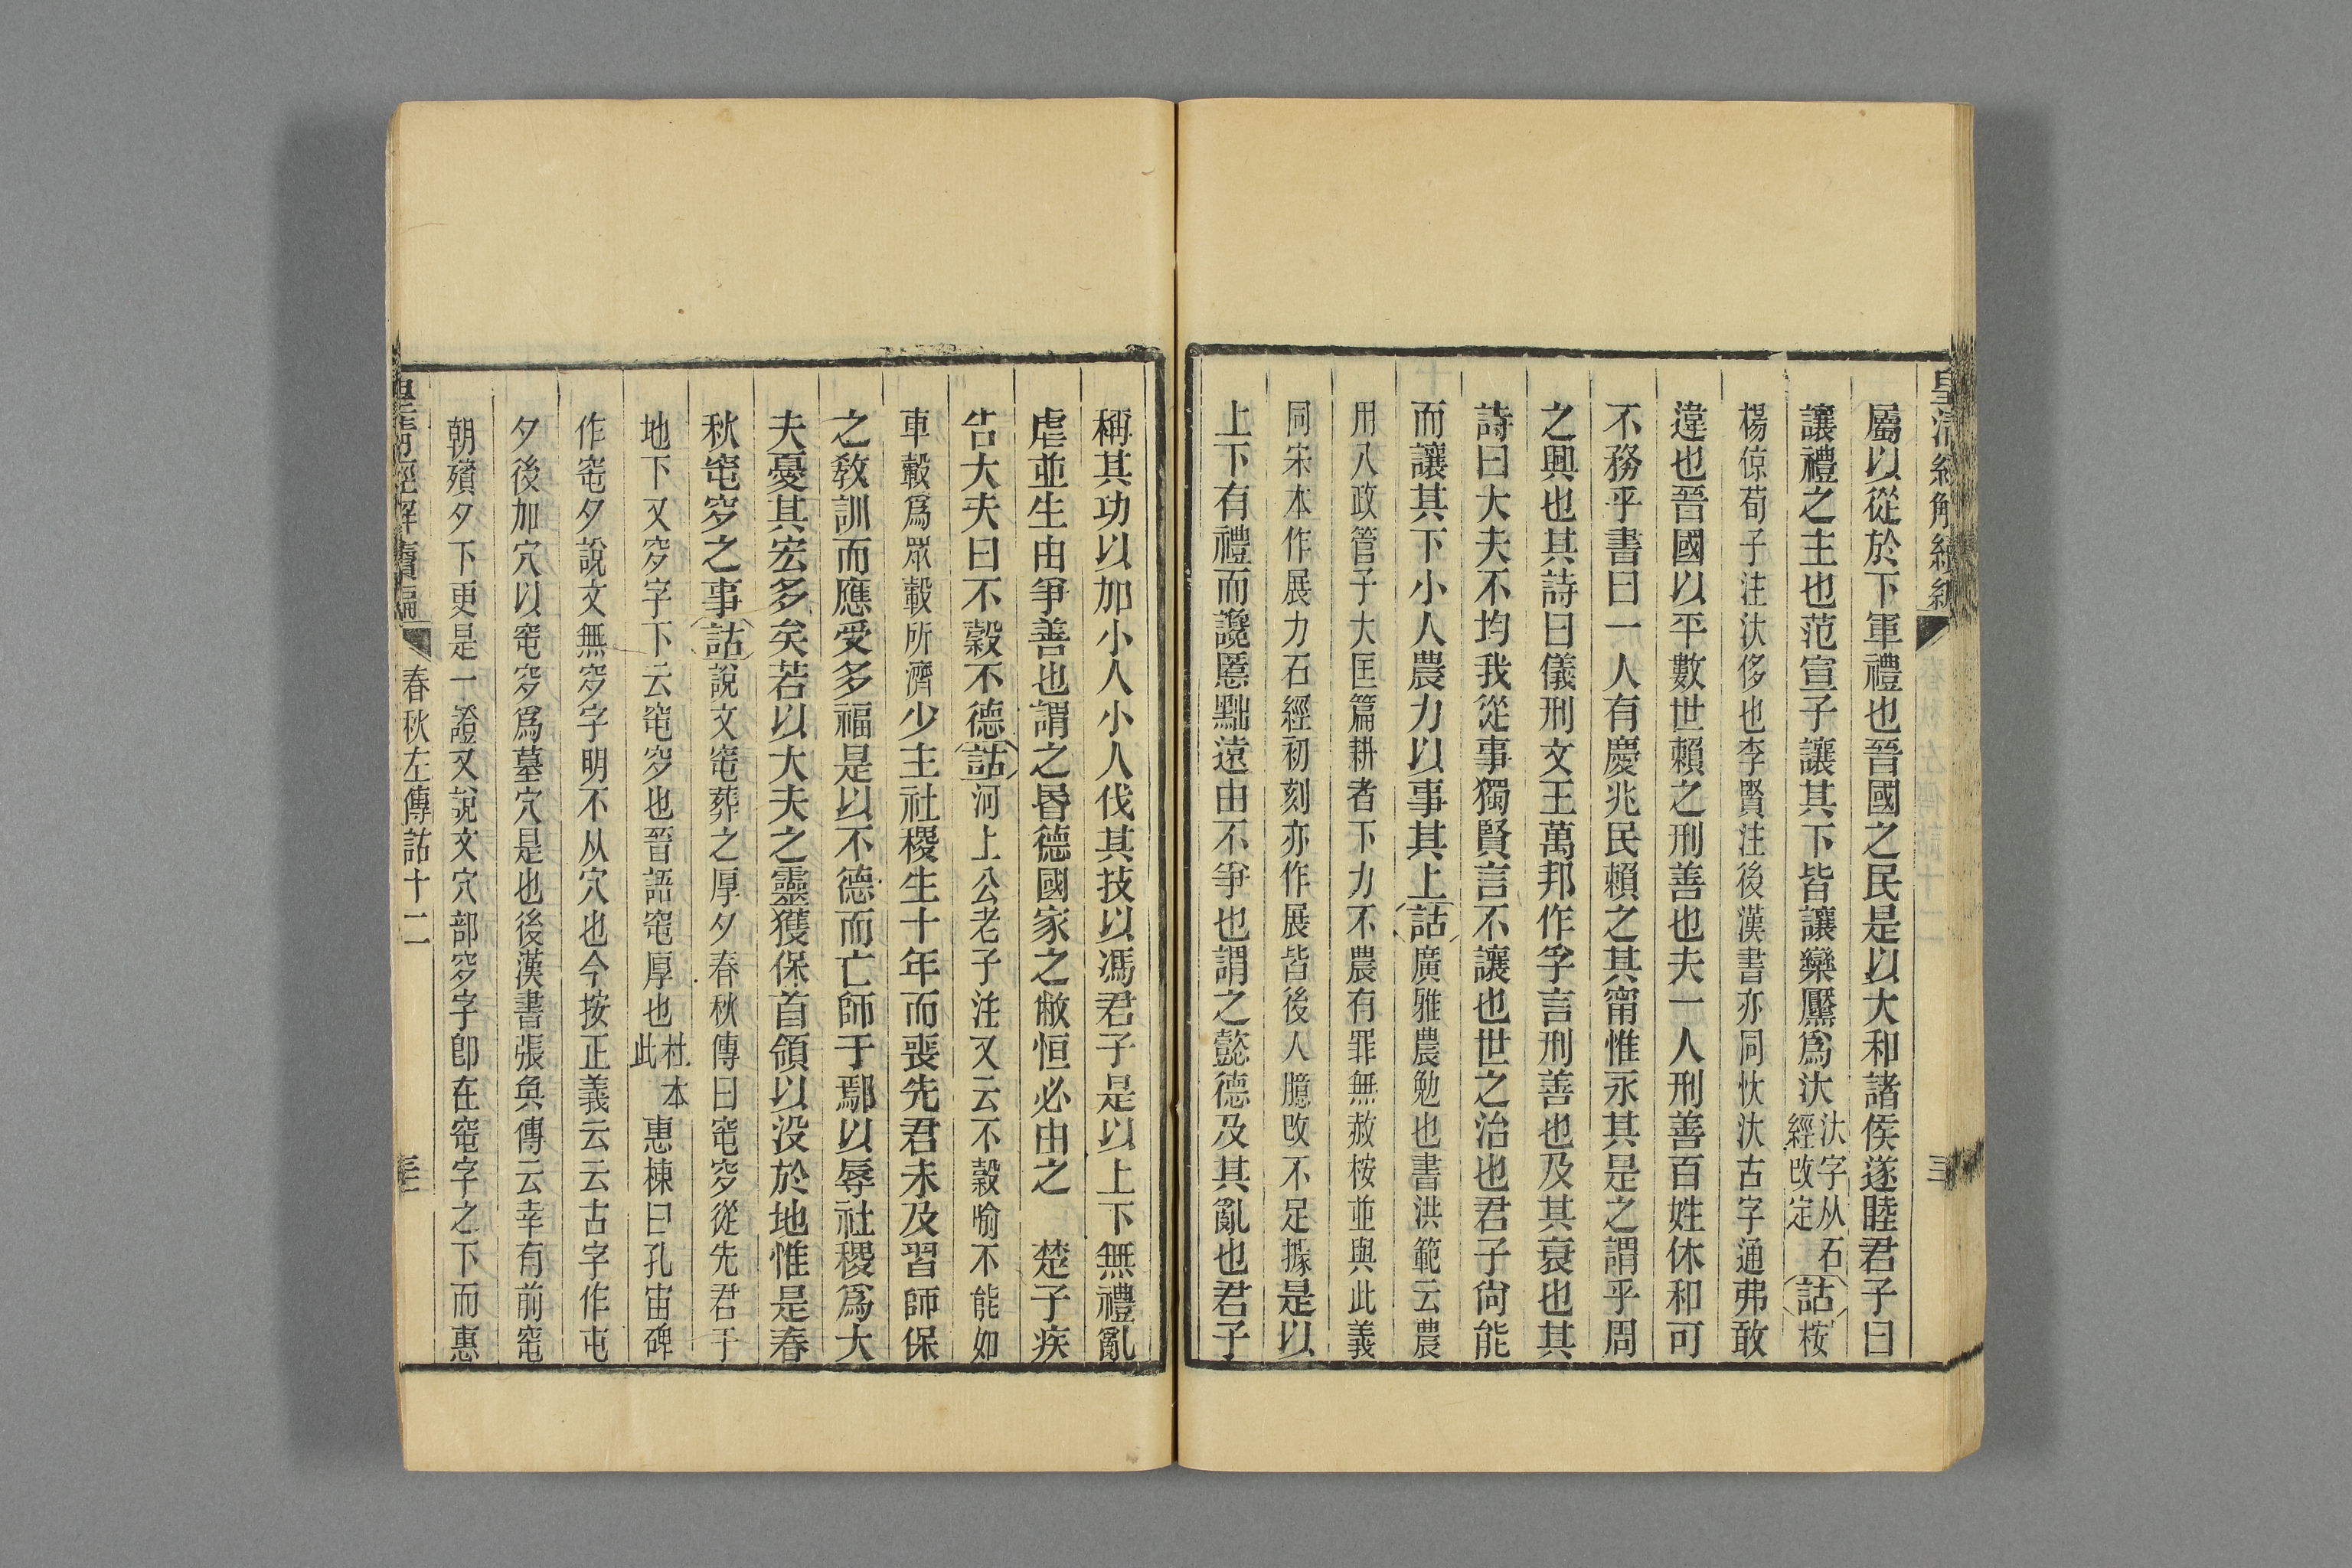 屬以從於下軍禮也晉國之民是以大和諸侯遂睦君子曰
讓禮之主也范宣子讓其下皆讓欒黶爲汰汰字从石經改定詁桉
楊倞荀子注汰侈也李賢注後漢書亦同忕汰古字通弗敢
違也晉國以平數世賴之刑善也夫一人刑善百姓休和可
不務乎書曰一人有慶兆民賴之其甯惟永其是之謂乎周
之興也其詩曰儀刑文王萬邦作孚言刑善也及其衰也其
詩曰大夫不均我從事獨賢言不讓也世之治也君子尙能
而讓其下小人農力以事其上詁廣雅農勉也書洪範云農
用八政管子大匡篇耕者下力不農有罪無赦桉並與此義
同宋本作展力石經初刻亦作展皆後人臆改不足據是以
上下有禮而讒慝黜遠由不爭也謂之懿德及其亂也君子
稱其功以加小人小人伐其技以馮君子是以上下無禮亂
虐並生由爭善也謂之昬德國家之敝恒必由之　楚子疾
告大夫曰不穀不德詁河上公老子注又云不穀喻不能如
車轂爲眾轂所濟少主社稷生十年而喪先君未及習師保
之敎訓而應受多福是以不德而亡師于鄢以辱社稷爲大
夫憂其宏多矣若以大夫之靈獲保首領以沒於地惟是春
秋窀穸之事詁說文窀葬之厚夕春秋傳曰窀穸從先君于
地下又穸字下云窀穸也晉語窀厚也杜本此惠棟曰孔宙碑
作窀夕說文無穸字明不从穴也今按正義云云古字作屯
夕後加穴以窀穸爲墓穴是也後漢書張奐傳云幸有前窀
朝殯夕下更是一證又說文穴部穸字卽在窀字之下而惠
皇清經解續編
春秋左傳詁十二